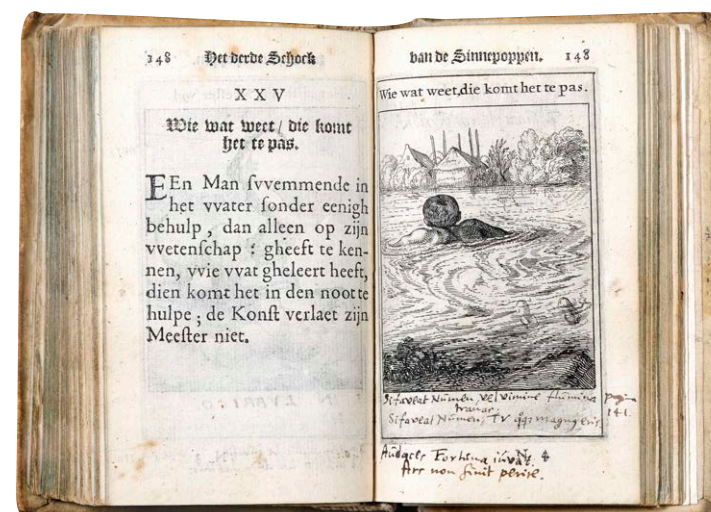 148 Het derde Schock
XXV
Wie wat weet / die komt
het te pas.
EEn Man ſvvemmende in
het vvater ſonder eenigh
behulp, dan alleen op zijn
vvetenſchap : gheeft te ken-
nen, vvie vvat gheleert heeft,
dien komt het in den noot te
hulpe ; de Konſt verlaet zijn
Meeſter niet.
van de Sinnepoppen. 148
Wie wat weet, die komt het te pas.
Si faveat Numen, vel vimine flumina pagina
tranas. 141.
Si faveat Numen, Tu magnus eris.
Audaces Fortuna iuvat.
Ars non sinit perire.